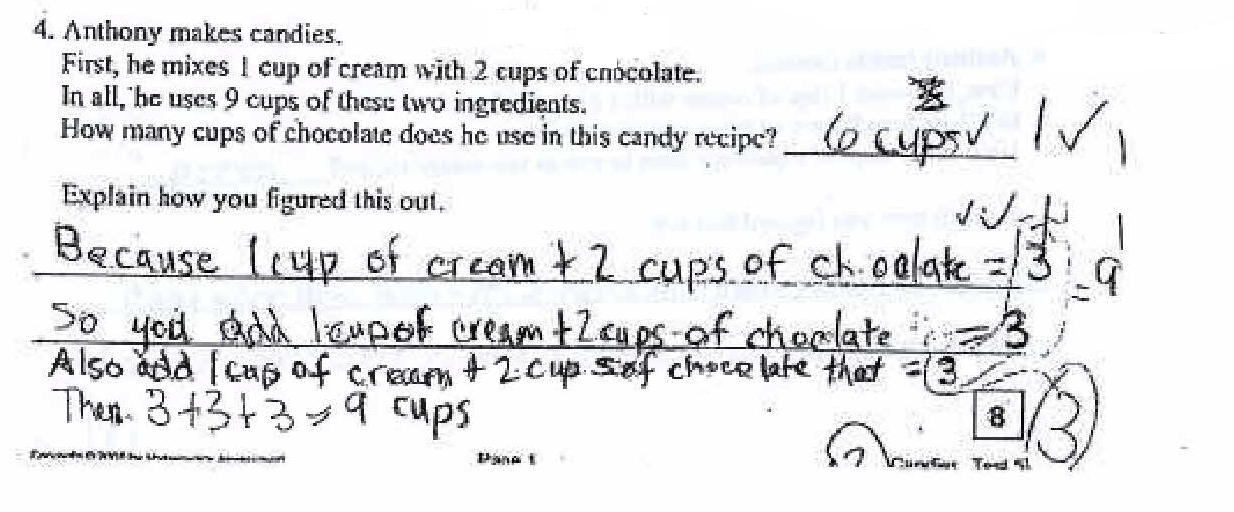 4. Anthony makes candies.
First, he mixes 1 cup of cream with 2 cups of chocolate.
In all, he uses 9 cups of these two ingredients.
How many cups of chocolate does he use in this candy recipe? 6 cups ✓ 1 ✓ 1
Explain how you figured this out.
✓ ✓ 1
Because 1 cup of cream + 2 cups of ch.oolate = 3 = 9
So you add 1 cup of cream + 2 cups of choclate = 3
Also add 1 cup of cream + 2 cups of chocolate that = 3
Then 3+3+3 = 9 cups
8 3
Page 1 Candies Test 5